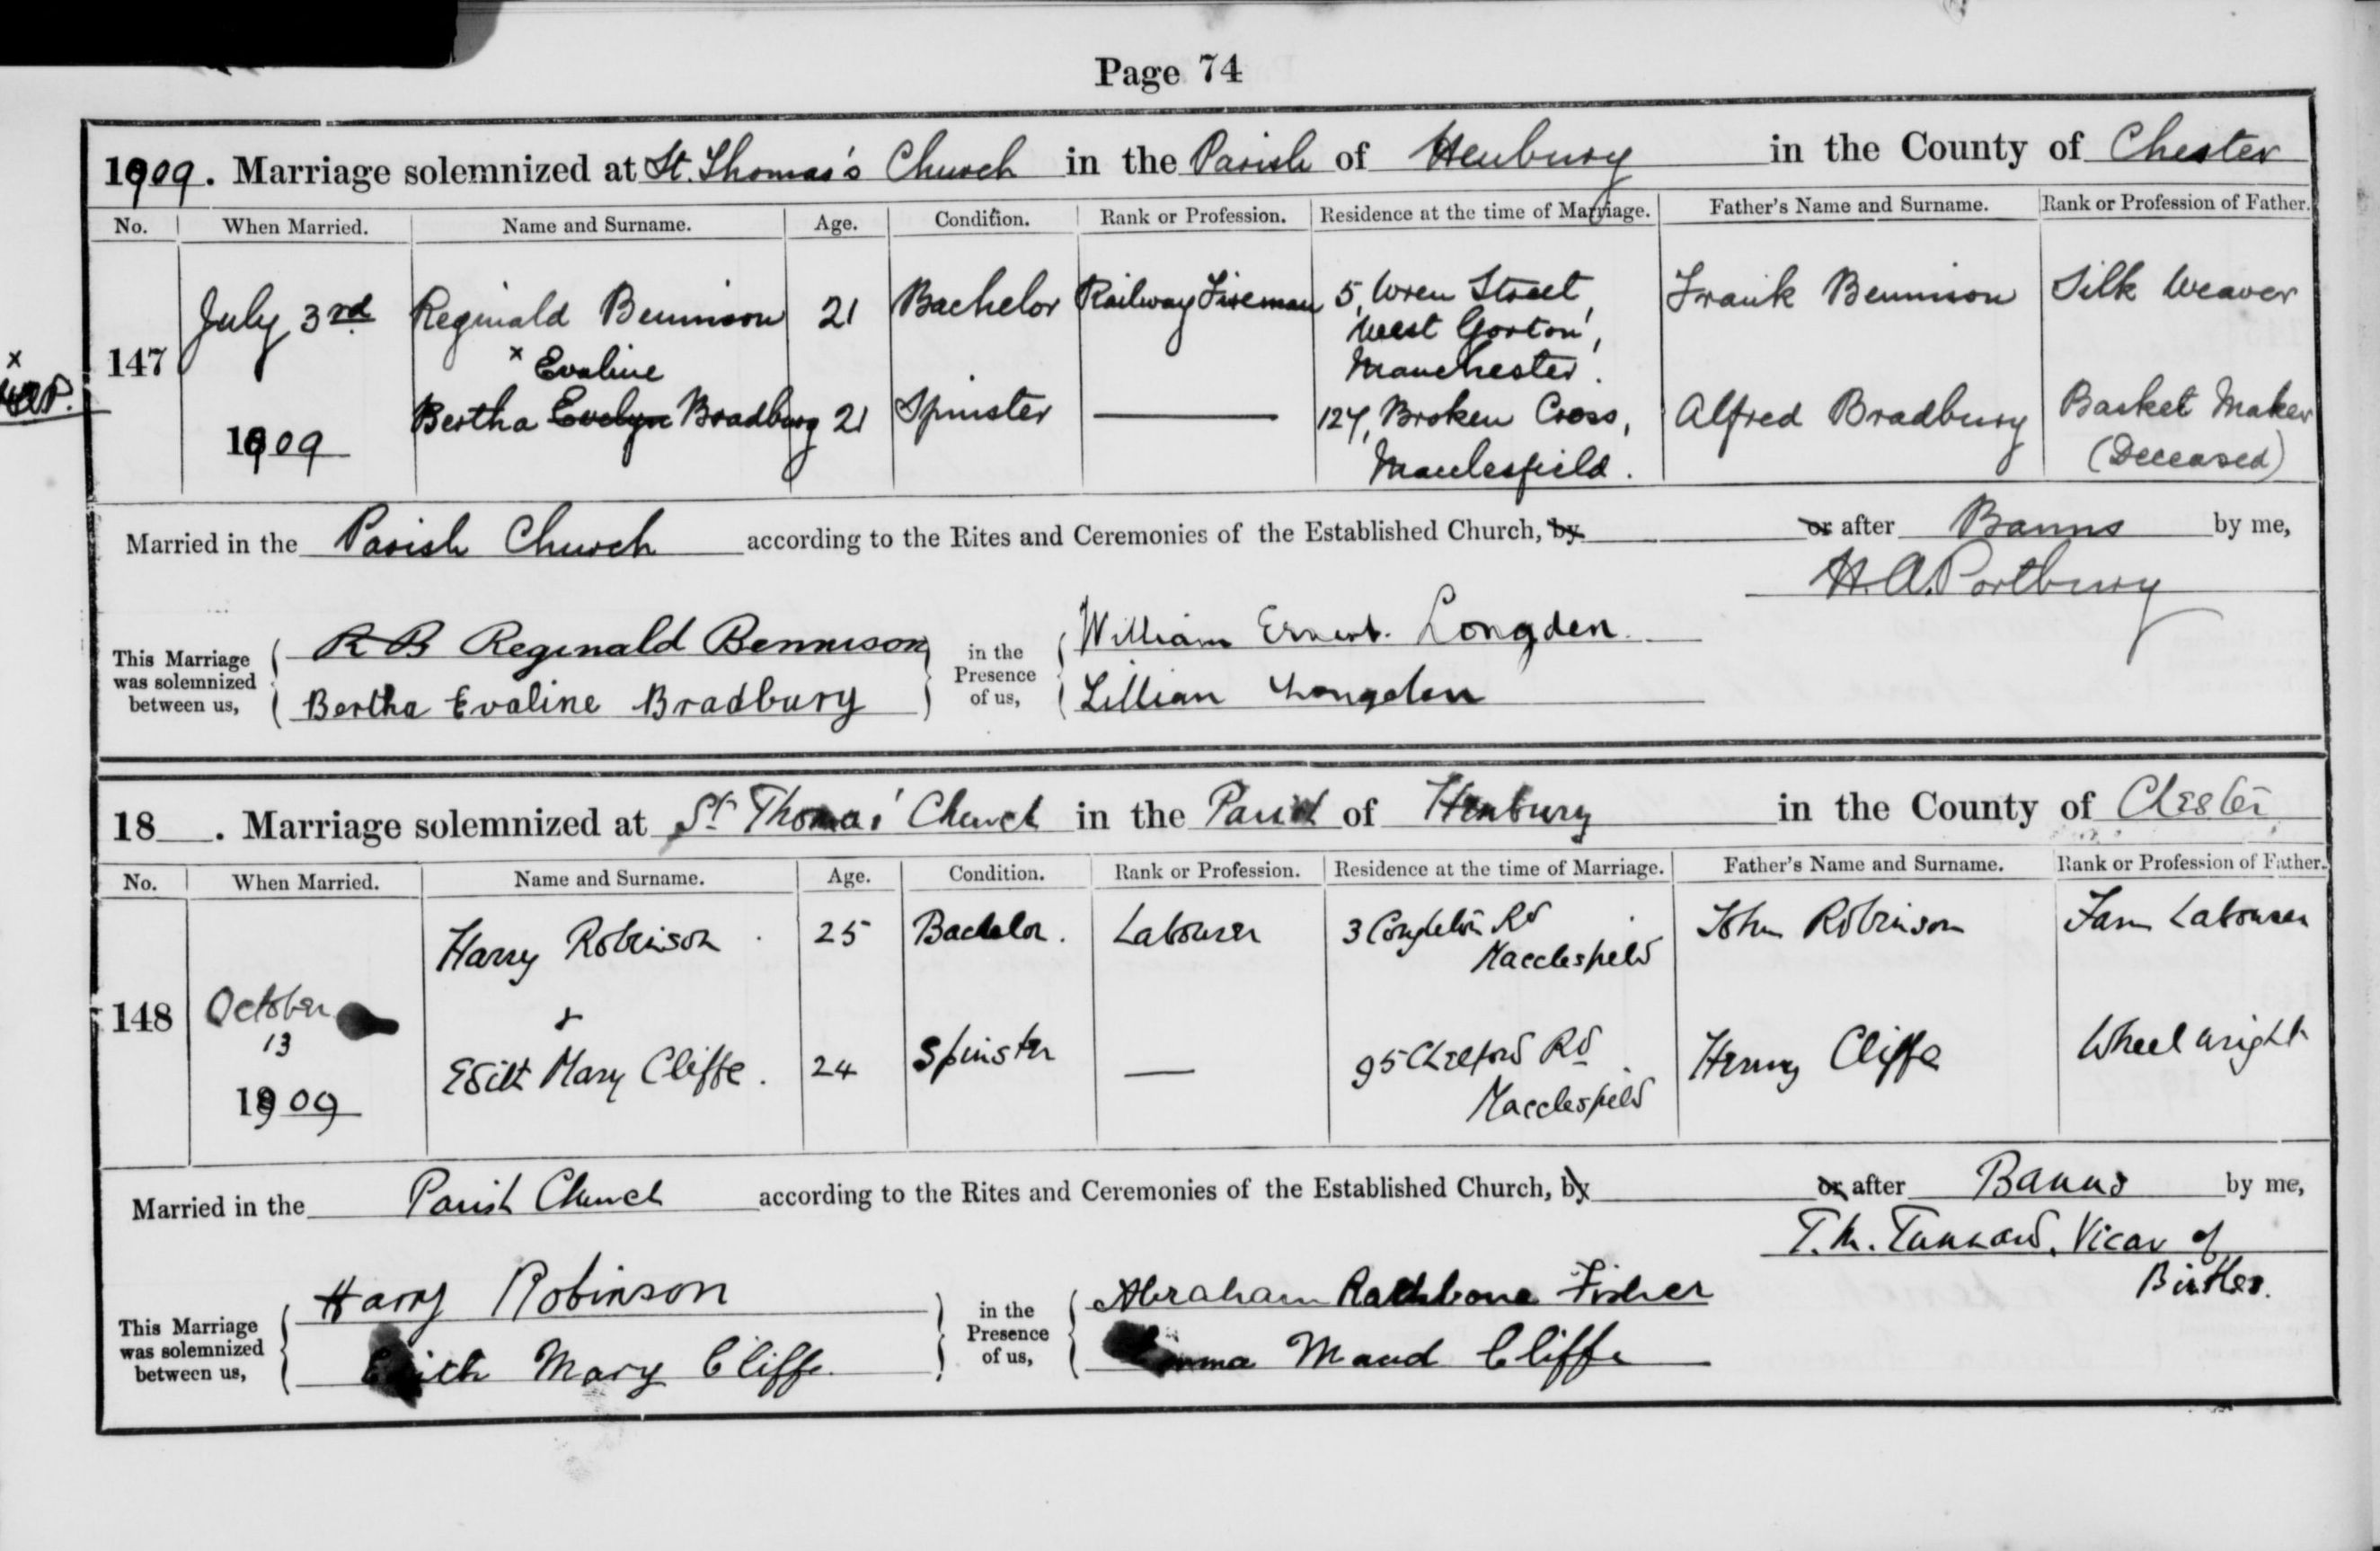 Page 74
1909. Marriage solemnized at St. Thomas's Church in the Parish of Henbury in the County of Chester
No. When Married. Name and Surname. Age. Condition. Rank or Profession. Residence at the time of Marriage. Father's Name and Surname. Rank or Profession of Father.
July 3rd Reginald Bennison 21 Bachelor Railway Fireman 5, Wren Street, Frank Bennison Silk Weaver
West Gorton,
x 147 x Evaline Manchester.
H.A.P. Bertha Evelyn Bradbury 21 Spinster 127, Broken Cross, Alfred Bradbury Basket Maker
1909 Macclesfield. (Deceased)
Married in the Parish Church according to the Rites and Ceremonies of the Established Church, by or after Banns by me,
H.A. Portbury
This Marriage was solemnized between us, R B Reginald Bennison in the Presence of us, William Ernest Longden
Bertha Evaline Bradbury Lillian Longden
18 . Marriage solemnized at St Thomas' Church in the Parish of Henbury in the County of Chester
No. When Married. Name and Surname. Age. Condition. Rank or Profession. Residence at the time of Marriage. Father's Name and Surname. Rank or Profession of Father.
Harry Robinson 25 Bachelor. Labourer 3 Congleton Rd John Robinson Farm Labourer
Macclesfield
148 October
13 Edith Mary Cliffe. 24 Spinster 95 Chelford Rd Henry Cliffe Wheelwright
1909 Macclesfield
Married in the Parish Church according to the Rites and Ceremonies of the Established Church, by or after Banns by me,
Vicar of
This Marriage was solemnized between us, Harry Robinson in the Presence of us, Abraham Rathbone Fisher
Edith Mary Cliffe Maud Cliffe